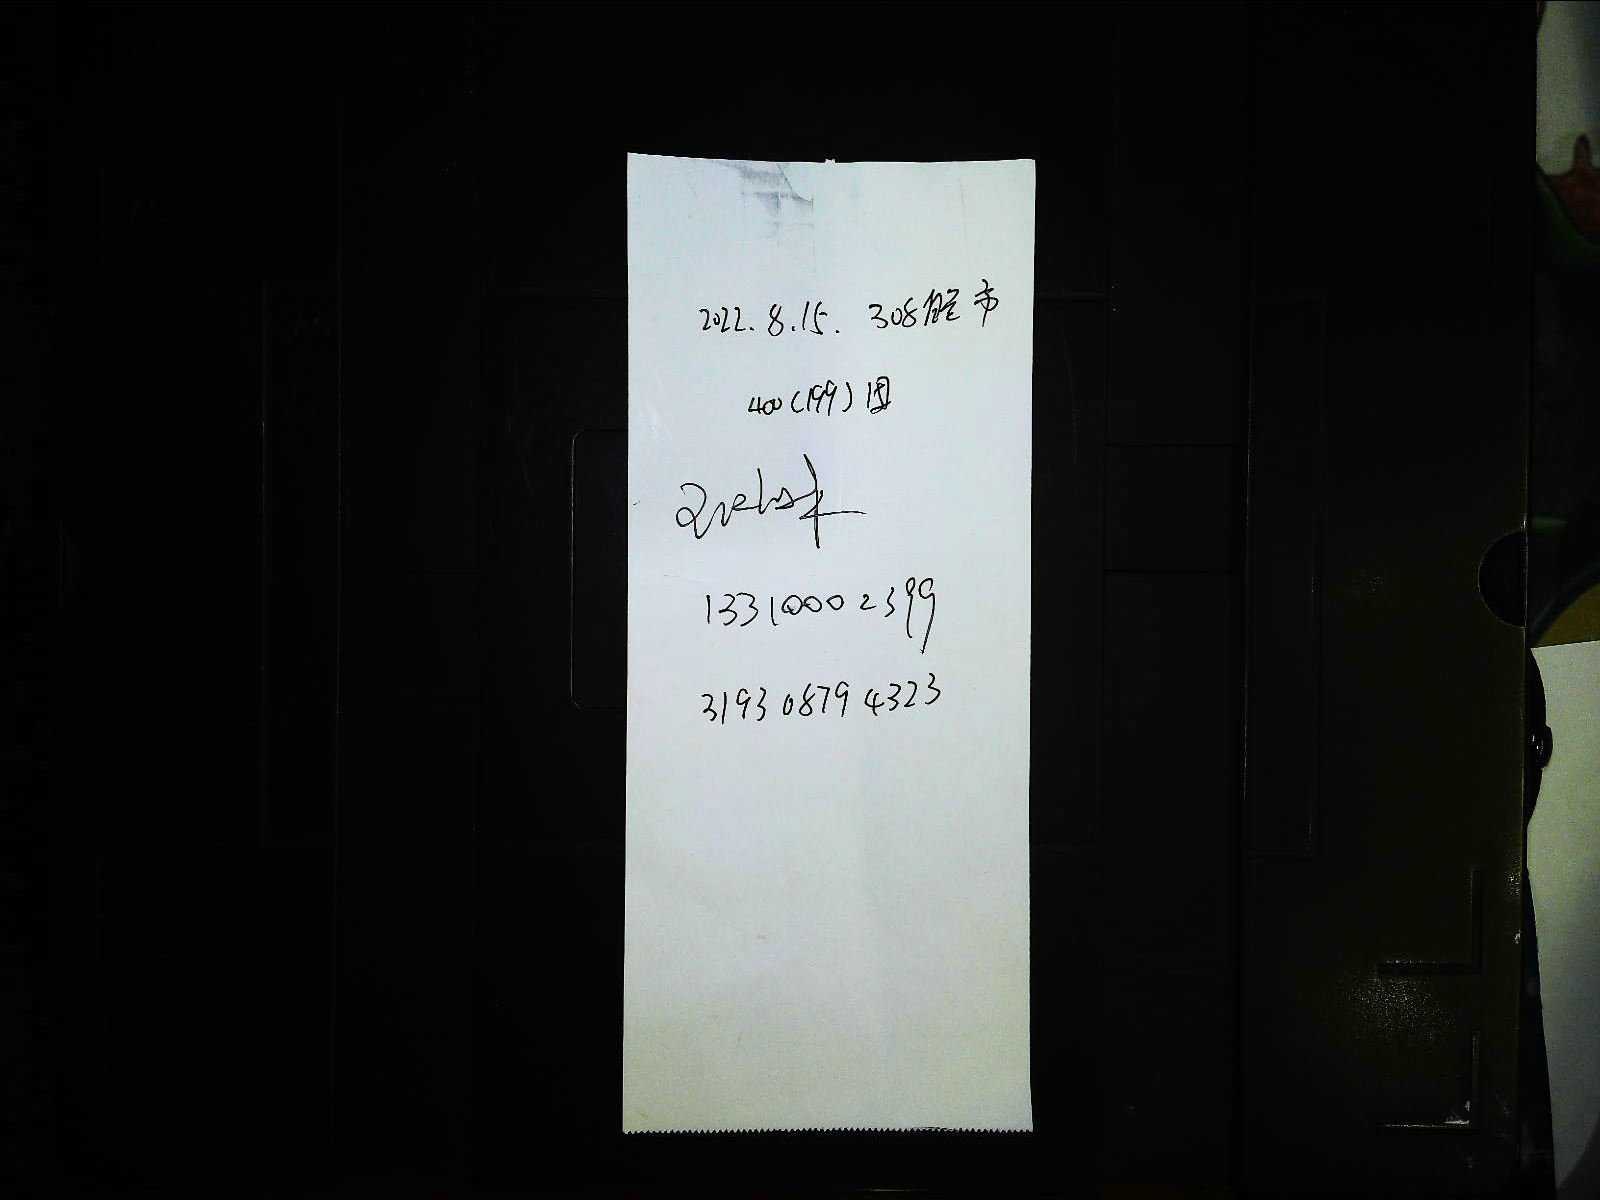 2022.8.15. 308
400(199)团
13310002399
3193 0879 4323